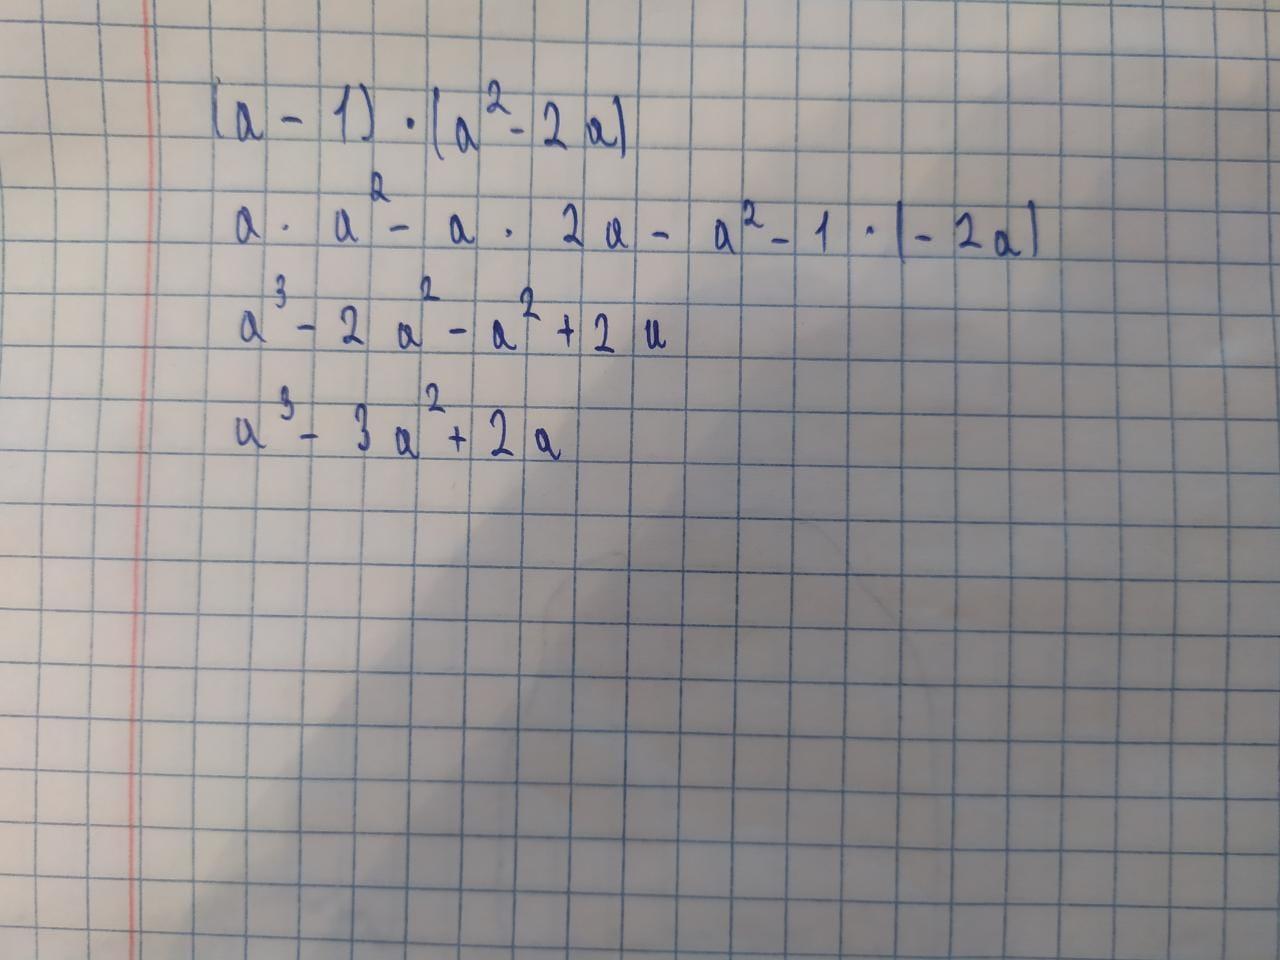 (a - 1) · (a² - 2a)
a · a² - a · 2a - a² - 1 · (-2a)
a³ - 2a² - a² + 2a
a³ - 3a² + 2a